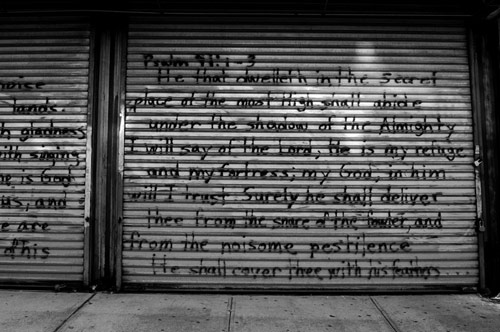 noise
lands.
gladness
with singing
he is God
us, and
are
of his
Psalm 91:1-3
He that dwelleth in the Secret
place of the most High shall abide
under the shadow of the Almighty
I will say of the Lord, He is my refuge
and my fortress; my God; in him
will I trust. Surely he shall deliver
thee from the snare of the fowler, and
from the noisome pestilence
He shall cover thee with his feathers